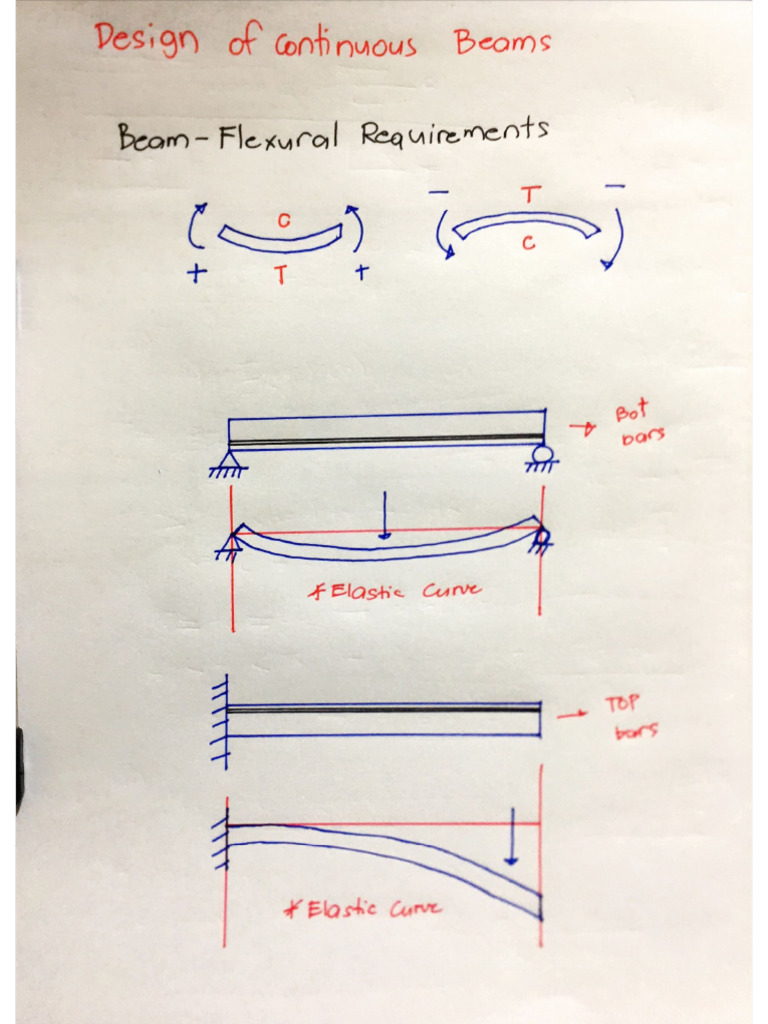 Design of Continuous Beams
Beam - Flexural Requirements
C
+ T +
- T -
C
Bot
bars
* Elastic Curve
TOP
bars
* Elastic Curve